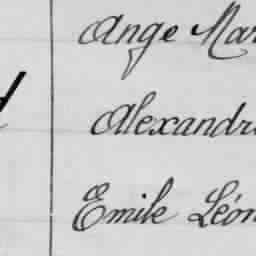 Ange Mar
Alexandr
Emile Léon